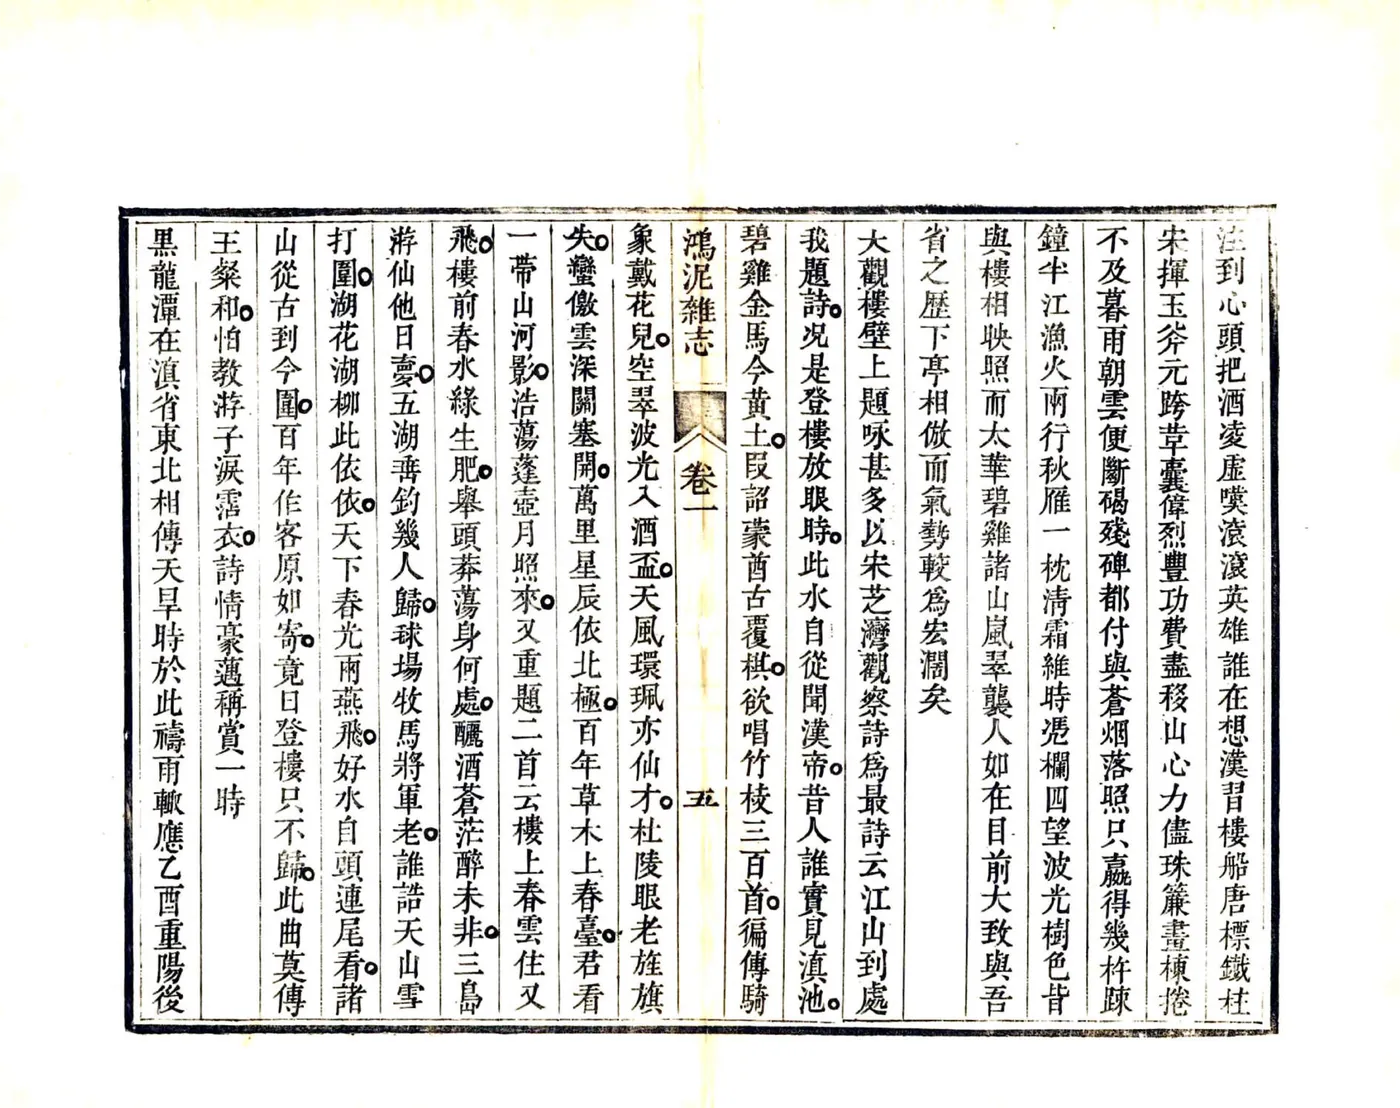 注到心頭把酒凌虛嘆滾滾英雄誰在想漢習樓船唐標鐵柱
宋揮玉斧元跨革囊偉烈豐功費盡移山心力儘珠簾畫棟捲
不及暮雨朝雲便斷碣殘碑都付與蒼烟落照只嬴得幾杵疎
鐘半江漁火兩行秋雁一枕清霜維時凴欄四望波光樹色皆
與樓相映照而太華碧雞諸山嵐翠襲人如在目前大致與吾
省之歷下亭相倣而氣勢較爲宏濶矣
大觀樓壁上題咏甚多以宋芝灣觀察詩爲最詩云江山到處
我題詩。况是登樓放眼時。此水自從聞漢帝。昔人誰實見滇池。
碧雞金馬今黃土。叚詔蒙酋古覆棋。欲唱竹棱三百首。徧傳騎
鴻泥雜志 卷一 五
象戴花兒。空翠波光入酒盃。天風環珮亦仙才。杜陵眼老旌旗
失。蠻儌雲深關塞開。萬里星辰依北極。百年草木上春臺。君看
一帶山河影。浩蕩蓬壺月照來。又重題二首云樓上春雲住又
飛。樓前春水綠生肥。舉頭莽蕩身何處。釃酒蒼茫醉未非。三島
游仙他日夢。五湖垂釣幾人歸。球場牧馬將軍老。誰誥天山雪
打圍。湖花湖柳此依依。天下春光兩燕飛。好水自頭連尾看。諸
山從古到今圍。百年作客原如寄。竟日登樓只不歸。此曲莫傳
王粲和。怕教游子淚霑衣。詩情豪邁稱賞一時
黑龍潭在滇省東北相傳天旱時於此禱雨輙應乙酉重陽後